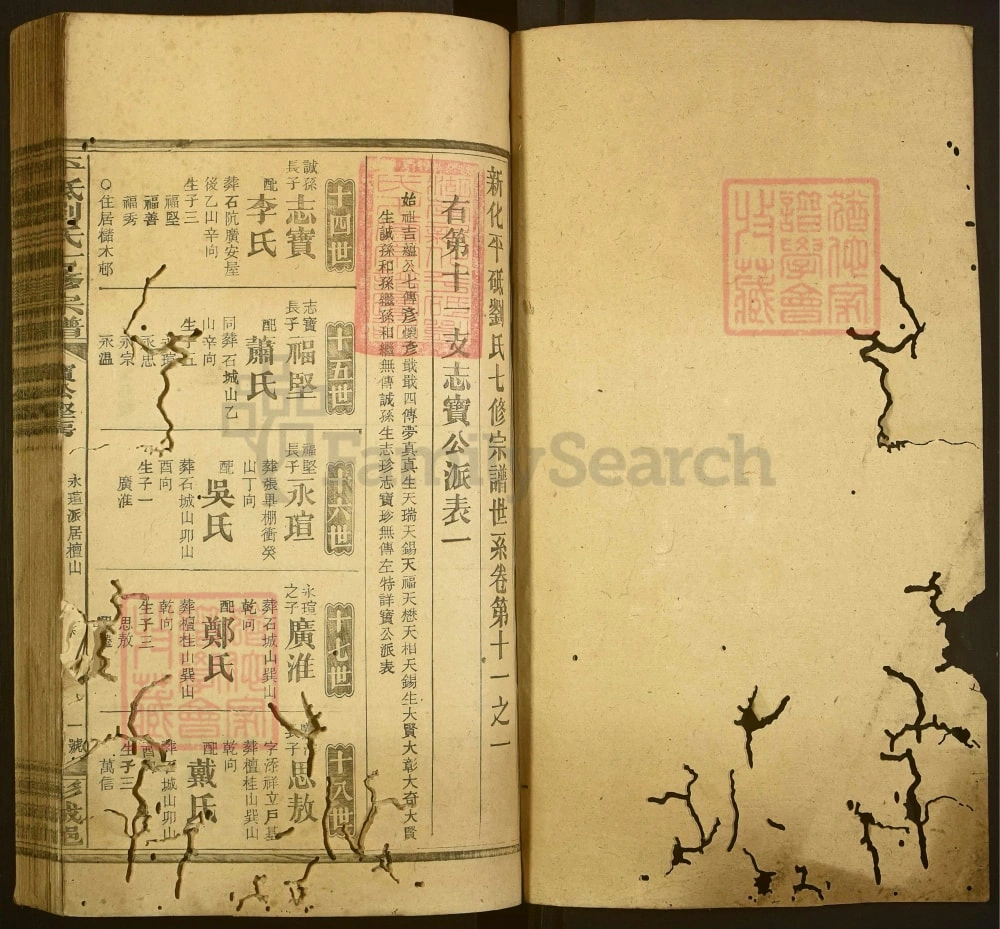 新化平砥劉氏七修宗譜世系卷第十一之一
右第十一支志寶公派表一
始祖吉蘊公七傳彥懷彥戢戢四傳夢真真生天瑞天錫天福天懋天相天錫生大賢大彰大奇大賢
生誠孫和孫繼孫和繼無傳誠孫生志珍志寶珍無傳左特詳寶公派表
十四世
誠孫長子志寶
配李氏
葬石阬廣安屋
後乙山辛向
生子三
福堅
福善
福秀
○住居櫧木邨
十五世
志寶長子福堅
配蕭氏
同葬石城山乙
山辛向
生子五
永瑄
永忠
永宗
永温
十六世
福堅長子永瑄
葬張畢棚衝癸
山丁向
配吳氏
葬石城山卯山
酉向
生子一
廣淮
十七世
永瑄之子廣淮
葬石城山巽山
乾向
配鄭氏
葬檀桂山巽山
乾向
生子三
思敖
十八世
長子思敖
字添祥立戶基
葬檀桂山巽山
乾向
配戴氏
葬石城山卯山
酉
生子三
萬信
平砥劉氏七修宗譜
寶公堅房
永瑄派居檀山
一號
彭城邑
FamilySearch